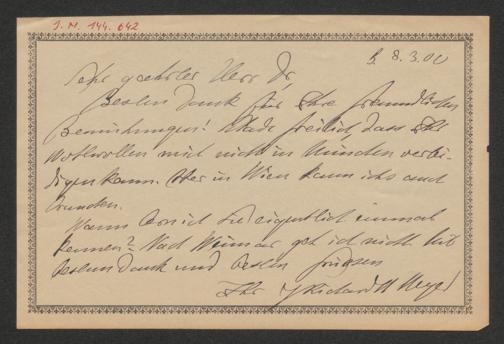 J. N. 144.642
B 8.3.00
Sehr geehrter Herr Dr,
Besten Dank für Ihre freundlichen
Bemühungen! Schade freilich dass Ihr
Wohlwollen mich nicht in München verthei-
digen kann. Aber in Wien kann ichs auch
brauchen.
Wann lern ich Sie eigentlich einmal
kennen? Nach Weimar geh ich nicht. Mit
bestem Dank und besten Grüssen
Ihr Richard M Meyer